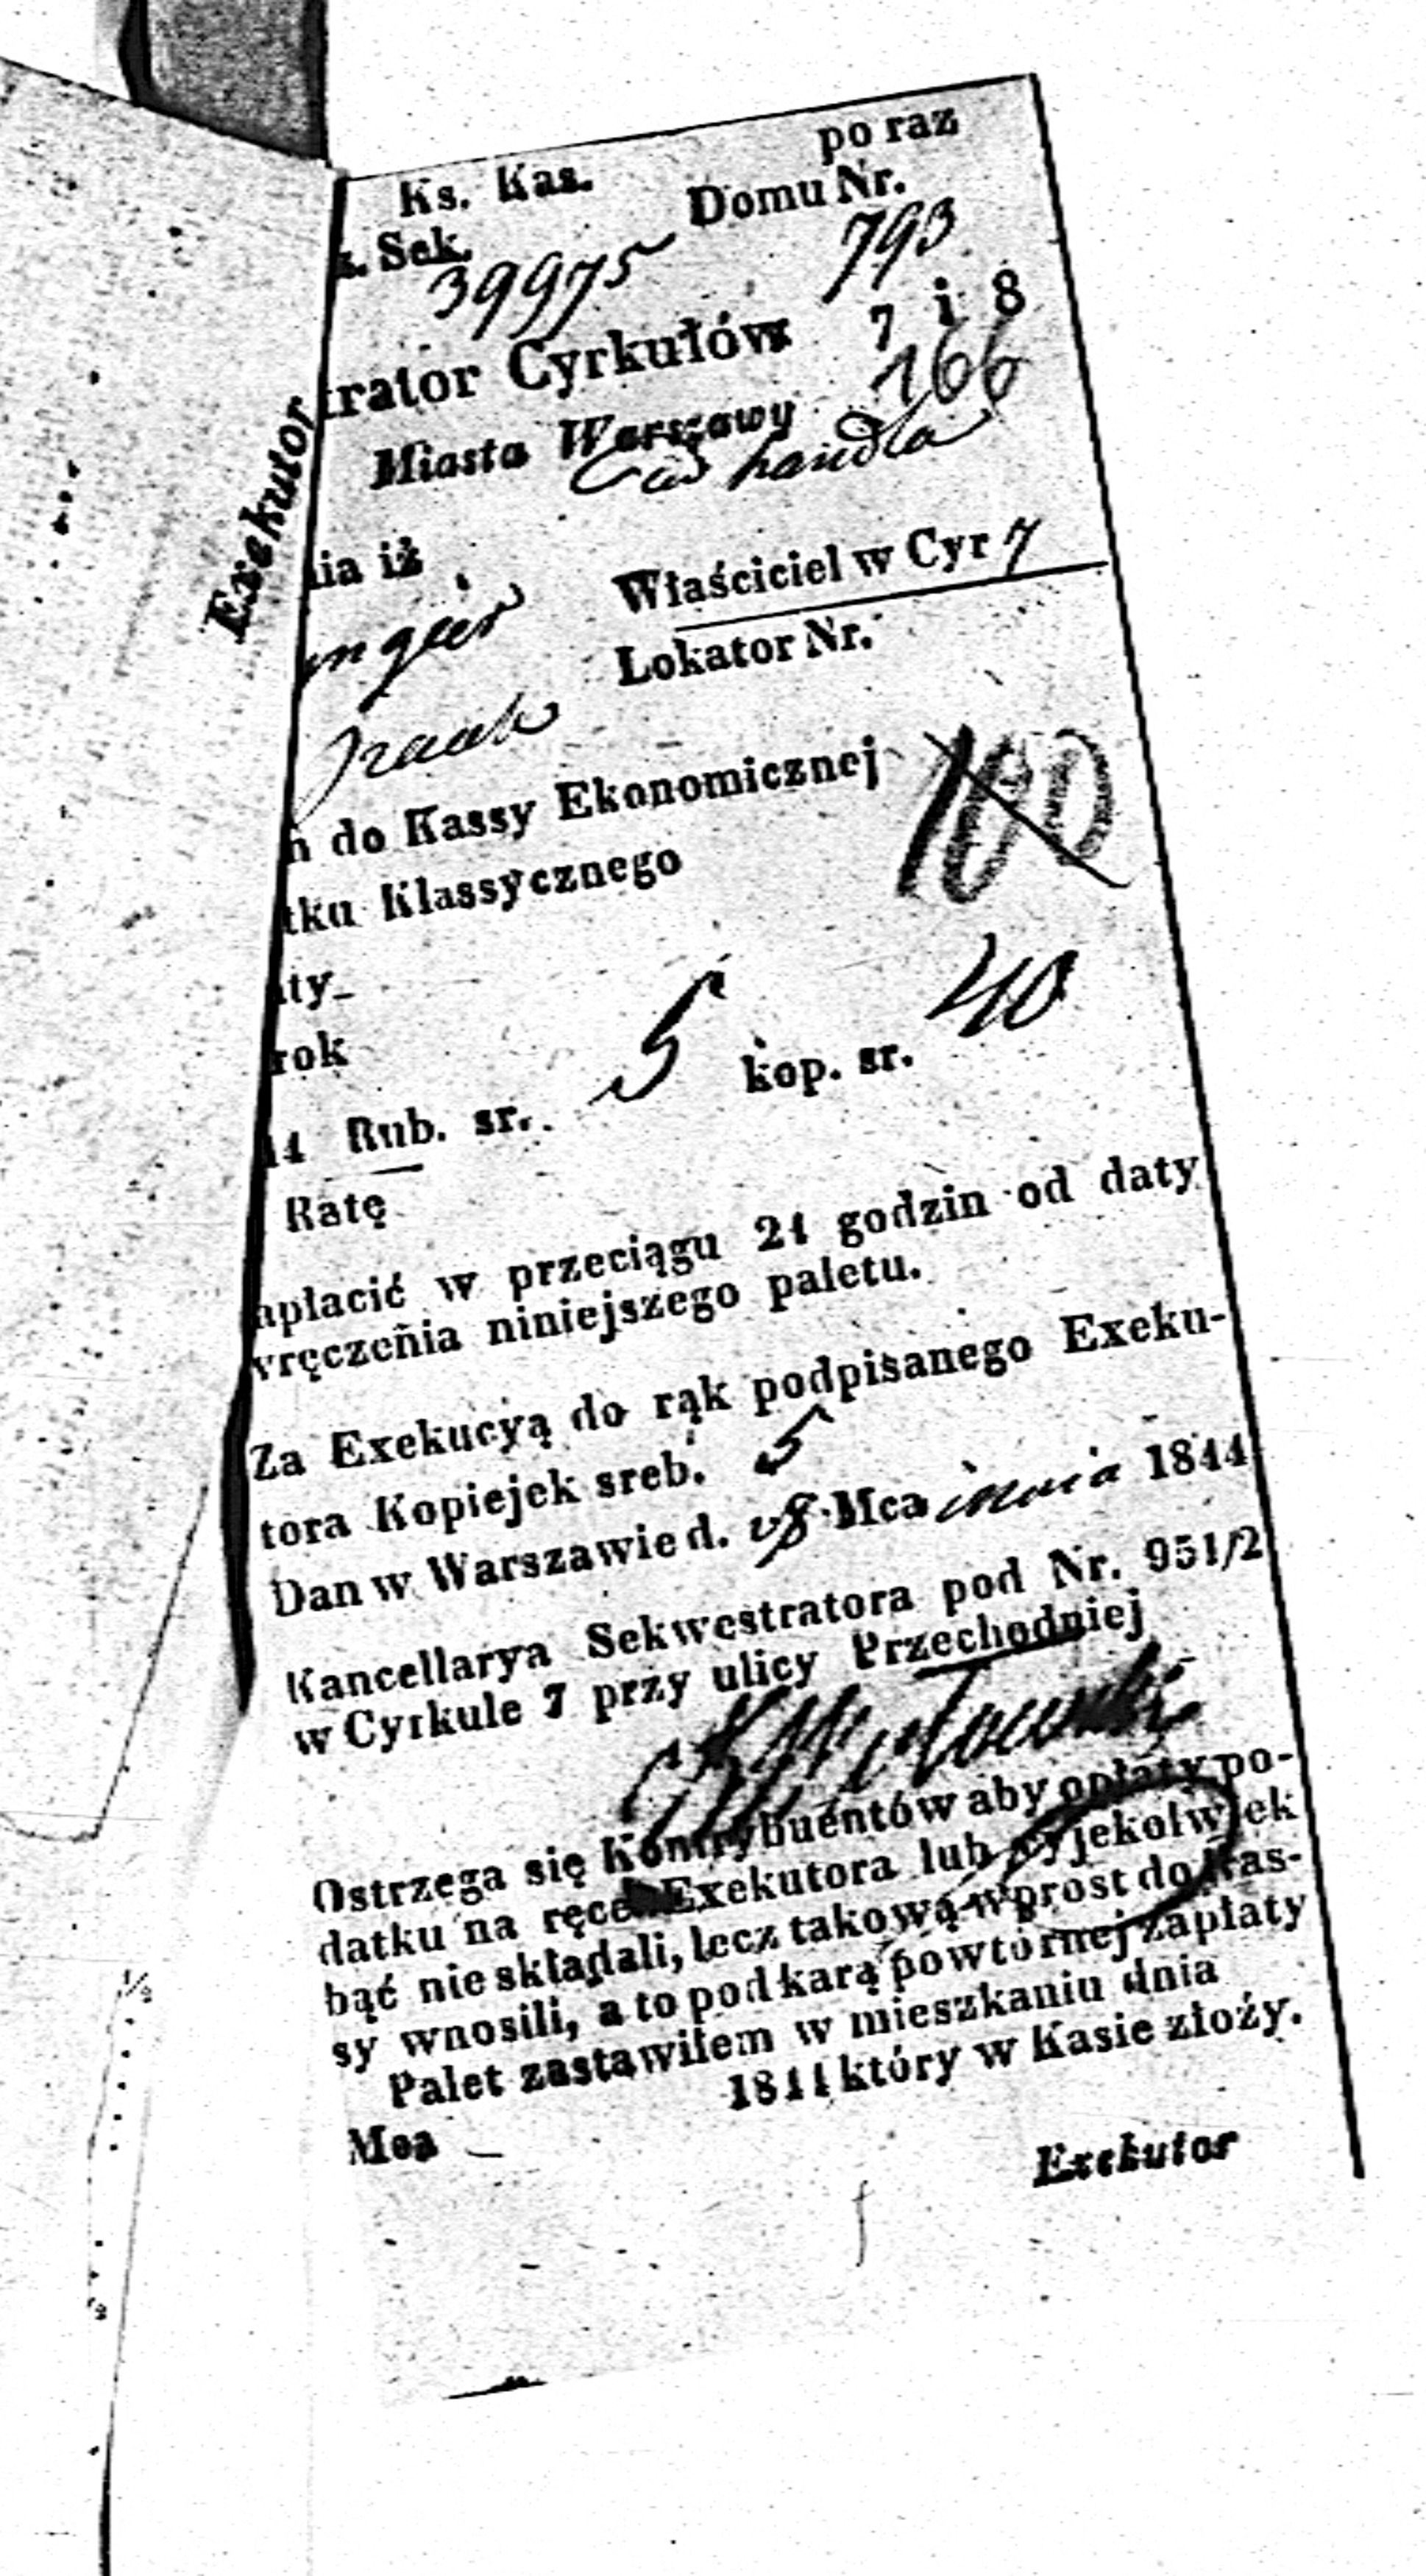 po raz
Ks. Kas. Domu Nr.
k. Sek. 793
39975
trator Cyrkułów 7 i 8
166
Miasta Warszawy
handla
Exekutor
nia iż
Właściciel w Cyr 7
Lokator Nr.
n do Kassy Ekonomicznej
100
tku Klassycznego
aty
rok
44 Rub. sr. 5 kop. sr. 40
Ratę
apłacić w przeciągu 24 godzin od daty
wręczenia niniejszego paletu.
Za Exekucyą do rąk podpisanego Exeku-
tora Kopiejek sreb. 5
Dan w Warszawie d. Mca maia 1844
Kancellarya Sekwestratora pod Nr. 951/2
w Cyrkule 7 przy ulicy Przechodniej
Ostrzega się Kontrybuentów aby opłaty po-
datku na ręce Exekutora lub czyjekolwiek
bąć nie składali, lecz takową wprost do Kas-
sy wnosili, a to pod karą powtórnej zapłaty
Palet zastawiłem w mieszkaniu dnia
Mca 1844 który w Kasie złoży.
Exekutor